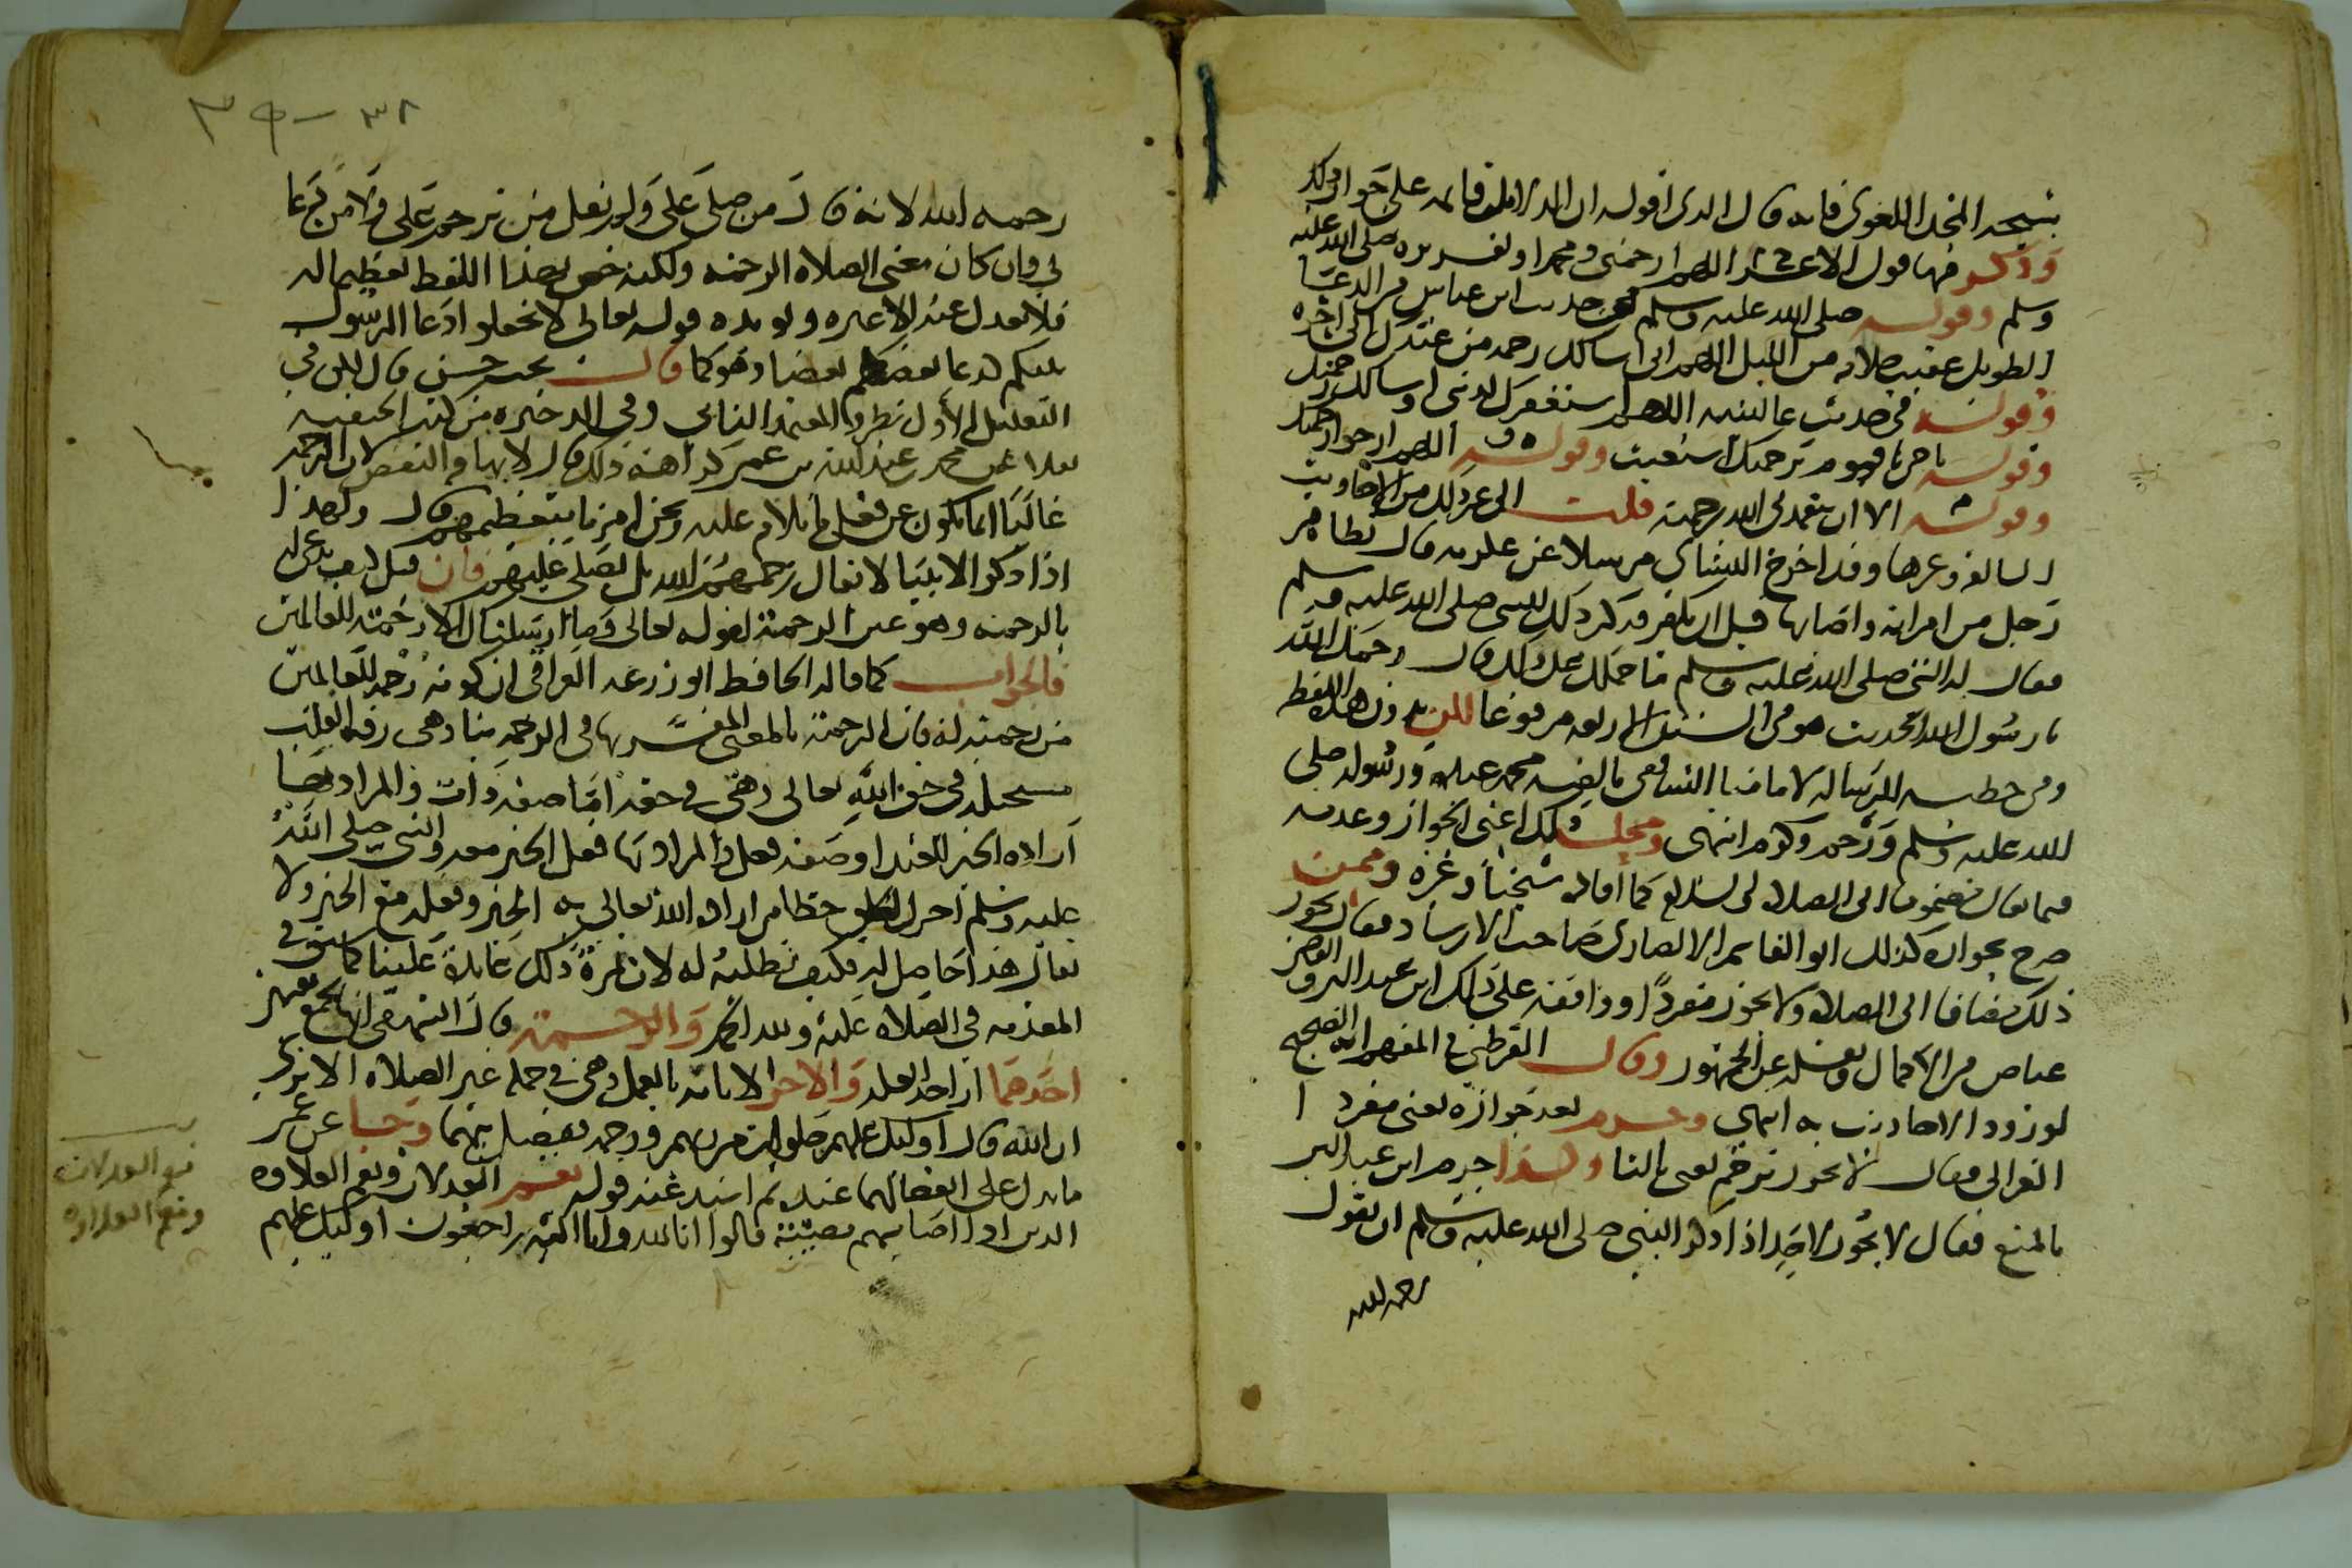 شيخه المجد اللغوي فانه قال الذي اقوله ان الدلايل قايمه على جواز ذلك
وذكر منها قول الاعرابي اللهم ارحمني ومحمدا وتقريره صلى الله عليه
وسلم وقوله صلى الله عليه وسلم في حديث ابن عباس في الدعا
الطويل عقب صلاته من الليل اللهم اني اسالك رحمة من عندك الى اخره
وقوله في حديث عايشه اللهم استغفرك لذنبي واسالك رحمتك
وقوله ياحي ياقيوم برحمتك استغيث وقوله اللهم ارجوا رحمتك
وقوله الا ان يتغمدني الله برحمته قلت الى غير ذلك من الاحاديث
السالفه وغيرها وقد اخرج النسائي مرسلا عن عكرمه قال تظاهر
رجل من امراته واصابها قبل ان يكفر فذكر ذلك للنبي صلى الله عليه وسلم
فقال له النبي صلى الله عليه وسلم ما حملك على ذلك قال رحمك الله
يا رسول الله الحديث هو في السنن الاربعه مرفوعا لكن بدون هذه اللفظه
وفي خطبه الرساله لامامنا الشافعي مالفظه محمد عبده ورسوله صلى
الله عليه وسلم ورحم وكرم انتهى ومحل ذلك اعني الجواز وعدمه
فيما يقال مضموما الى الصلاه والسلام كما افاده شيخنا وغيره وممن
صرح بجوازه كذلك ابو القاسم الانصاري صاحب الارشاد فقال يجوز
ذلك مضافا الى الصلاه ولا يجوز مفردا ووافقه على ذلك ابن عبد البر والقاضي
عياض في الاكمال ونقله عن الجمهور وقال القرطبي في المفهم انه الصحيح
لورود الاحاديث به انتهى وجزم بعدم جوازه يعني مفردا
الغزالي فقال لا يجوز ترحم يعني بالتا وكذا جزم ابن عبد البر
بالمنع فقال لا يجوز لاحد اذا ذكر النبي صلى الله عليه وسلم ان يقول
رحمه الله
٣٨ - ٣٩
رحمه الله لانه قال من صلى علي ولم يقل من ترحم علي ولا من دعا
لي وان كان معنى الصلاه الرحمه ولكنه خص بهذا اللفظ تعظيما له
فلا يعدل عنه الى غيره ويويده قوله تعالى لا تجعلوا دعا الرسول
بينكم كدعا بعضكم بعضا وهو كما قال بحث حسن قال لكن في
التعليل الاول نظر والمعتمد الثاني وفي الذخيره من كتب الحنفيه
نقلا عن محمد عبد الله بن عمر كراهة ذلك قال لايهامه النقص لان الرحمه
غالبا انما تكون عن فعل ما يلام عليه ونحن امرنا بتعظيمهم قال ولهذا
اذا ذكر الانبيا لا يقال رحمهم الله بل يصلى عليهم فان قيل كيف يدعى له
بالرحمه وهو عين الرحمة لقوله تعالى وما ارسلناك الا رحمة للعالمين
فالجواب كما قاله الحافظ ابو زرعه العراقي ان كونه رحمة للعالمين
من رحمته له فان الرحمة بالمعنى المفسر بها في الرحمه بنا وهي رقة القلب
مستحيلة في حق الله تعالى وهي في حقه اما صفه ذات والمراد بها
اراده الخير للعبد او صفه فعل والمراد بها فعل الخير معه والنبي صلى الله
عليه وسلم اجزل الخلق حظا من اراده الله تعالى به الخير وفعله معه الخير ولا
يقال هذا حاصل له فكيف نطلبه له لان ثمرة ذلك عايدة علينا كما سبق في
المقدمه في الصلاه عليه ولله الحمد والرحمة قال البيهقي انها تجمع معنيين
احدهما ازاحة العله والاخر الاثابه بالعمل وهي في جمله غير الصلاه الا ترى
ان الله قال اوليك عليهم صلوات من ربهم ورحمه ففصل بينهما وجا عن عمر
مايدل على انفصالهما عنده ثم اسند عنه قوله نعم العدلان ونعم العلاوه
الذين اذا اصابتهم مصيبة قالوا انا لله وانا اليه راجعون اوليك عليهم
نعم العدلان
ونعم العلاوه